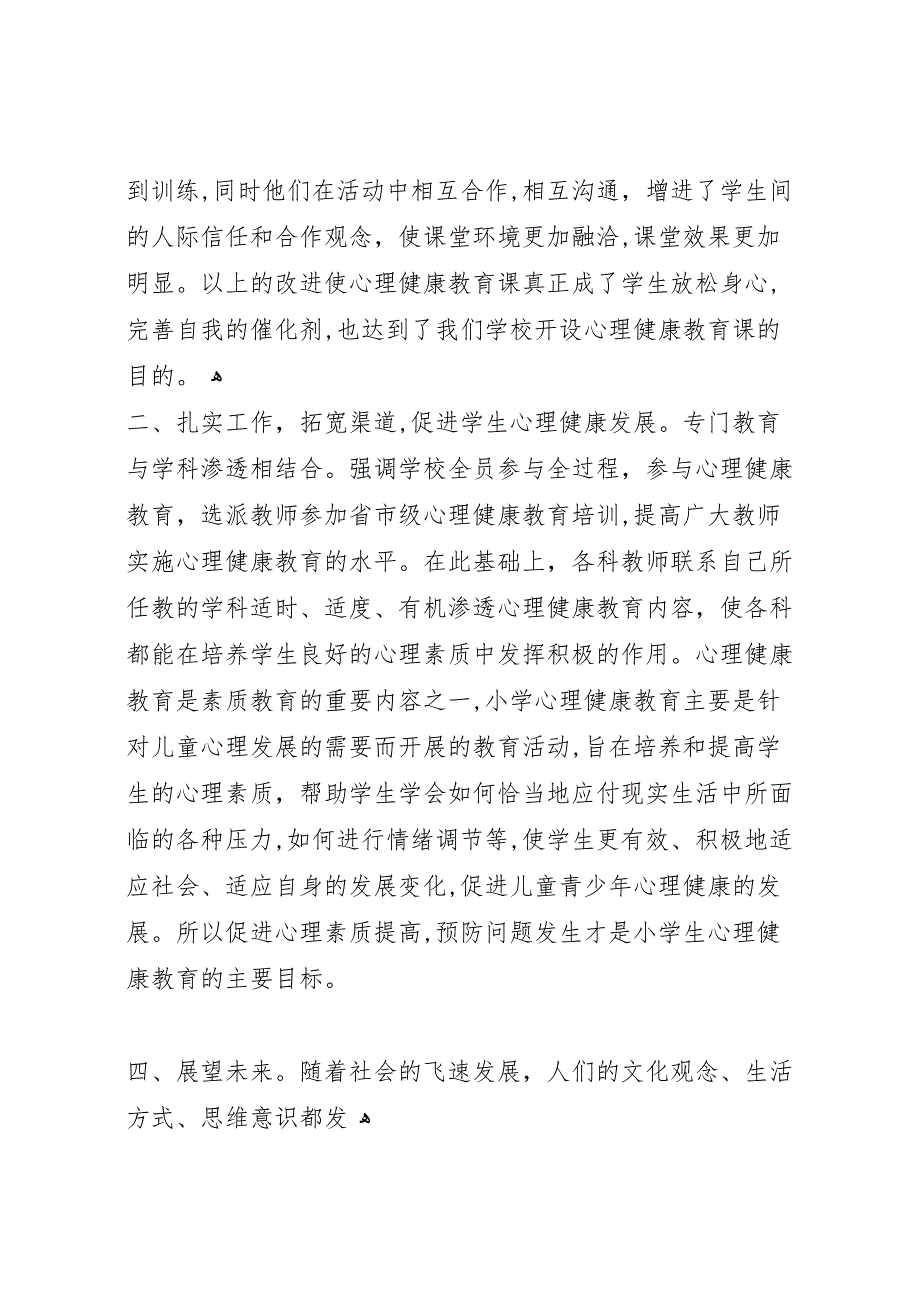 到训练,同时他们在活动中相互合作,相互沟通，增进了学生间
的人际信任和合作观念，使课堂环境更加融洽,课堂效果更加
明显。以上的改进使心理健康教育课真正成了学生放松身心,
完善自我的催化剂,也达到了我们学校开设心理健康教育课的
目的。 ﻫ
二、扎实工作，拓宽渠道,促进学生心理健康发展。专门教育
与学科渗透相结合。强调学校全员参与全过程，参与心理健康
教育，选派教师参加省市级心理健康教育培训,提高广大教师
实施心理健康教育的水平。在此基础上，各科教师联系自己所
任教的学科适时、适度、有机渗透心理健康教育内容，使各科
都能在培养学生良好的心理素质中发挥积极的作用。心理健康
教育是素质教育的重要内容之一,小学心理健康教育主要是针
对儿童心理发展的需要而开展的教育活动,旨在培养和提高学
生的心理素质，帮助学生学会如何恰当地应付现实生活中所面
临的各种压力,如何进行情绪调节等,使学生更有效、积极地适
应社会、适应自身的发展变化,促进儿童青少年心理健康的发
展。所以促进心理素质提高,预防问题发生才是小学生心理健
康教育的主要目标。
四、展望未来。随着社会的飞速发展，人们的文化观念、生活
方式、思维意识都发 ﻫ